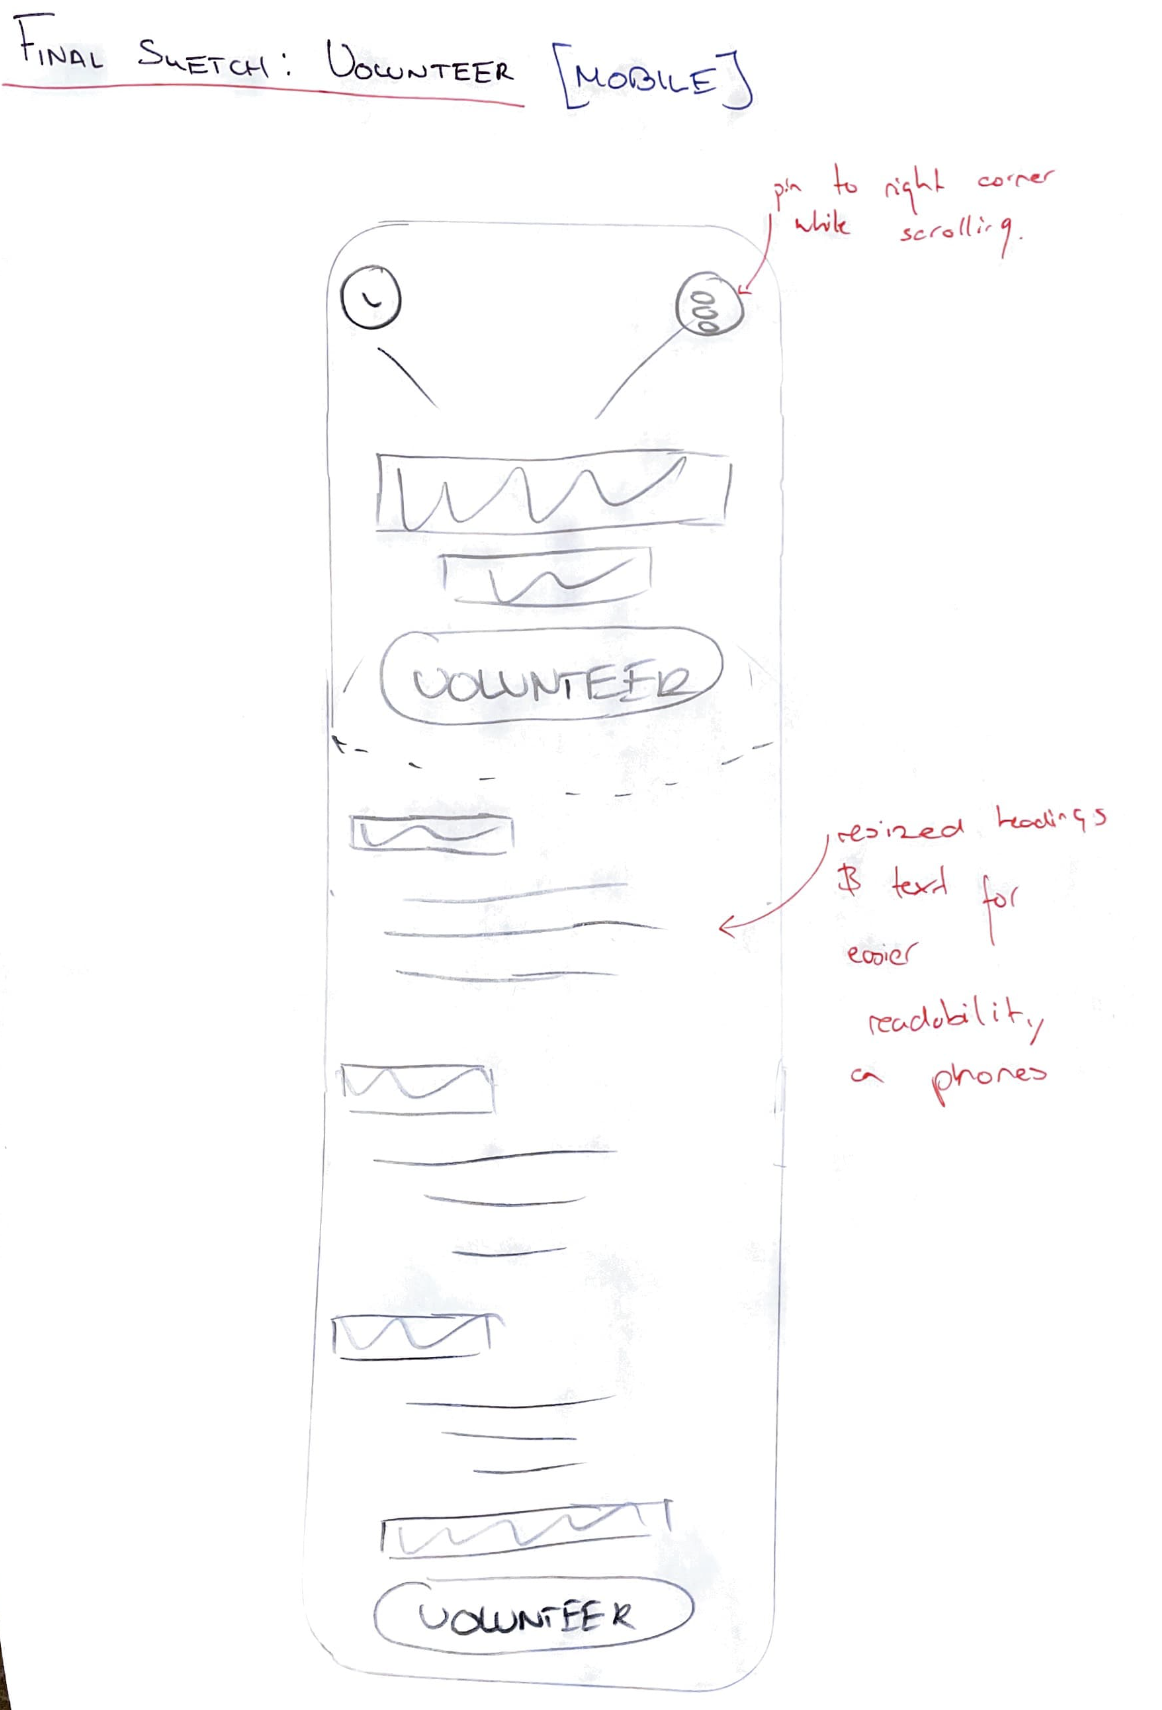 FINAL SKETCH: VOLUNTEER [MOBILE]
pin to right corner
while scrolling.
VOLUNTEER
resized headings
& text for
easier
readability
on phones
VOLUNTEER